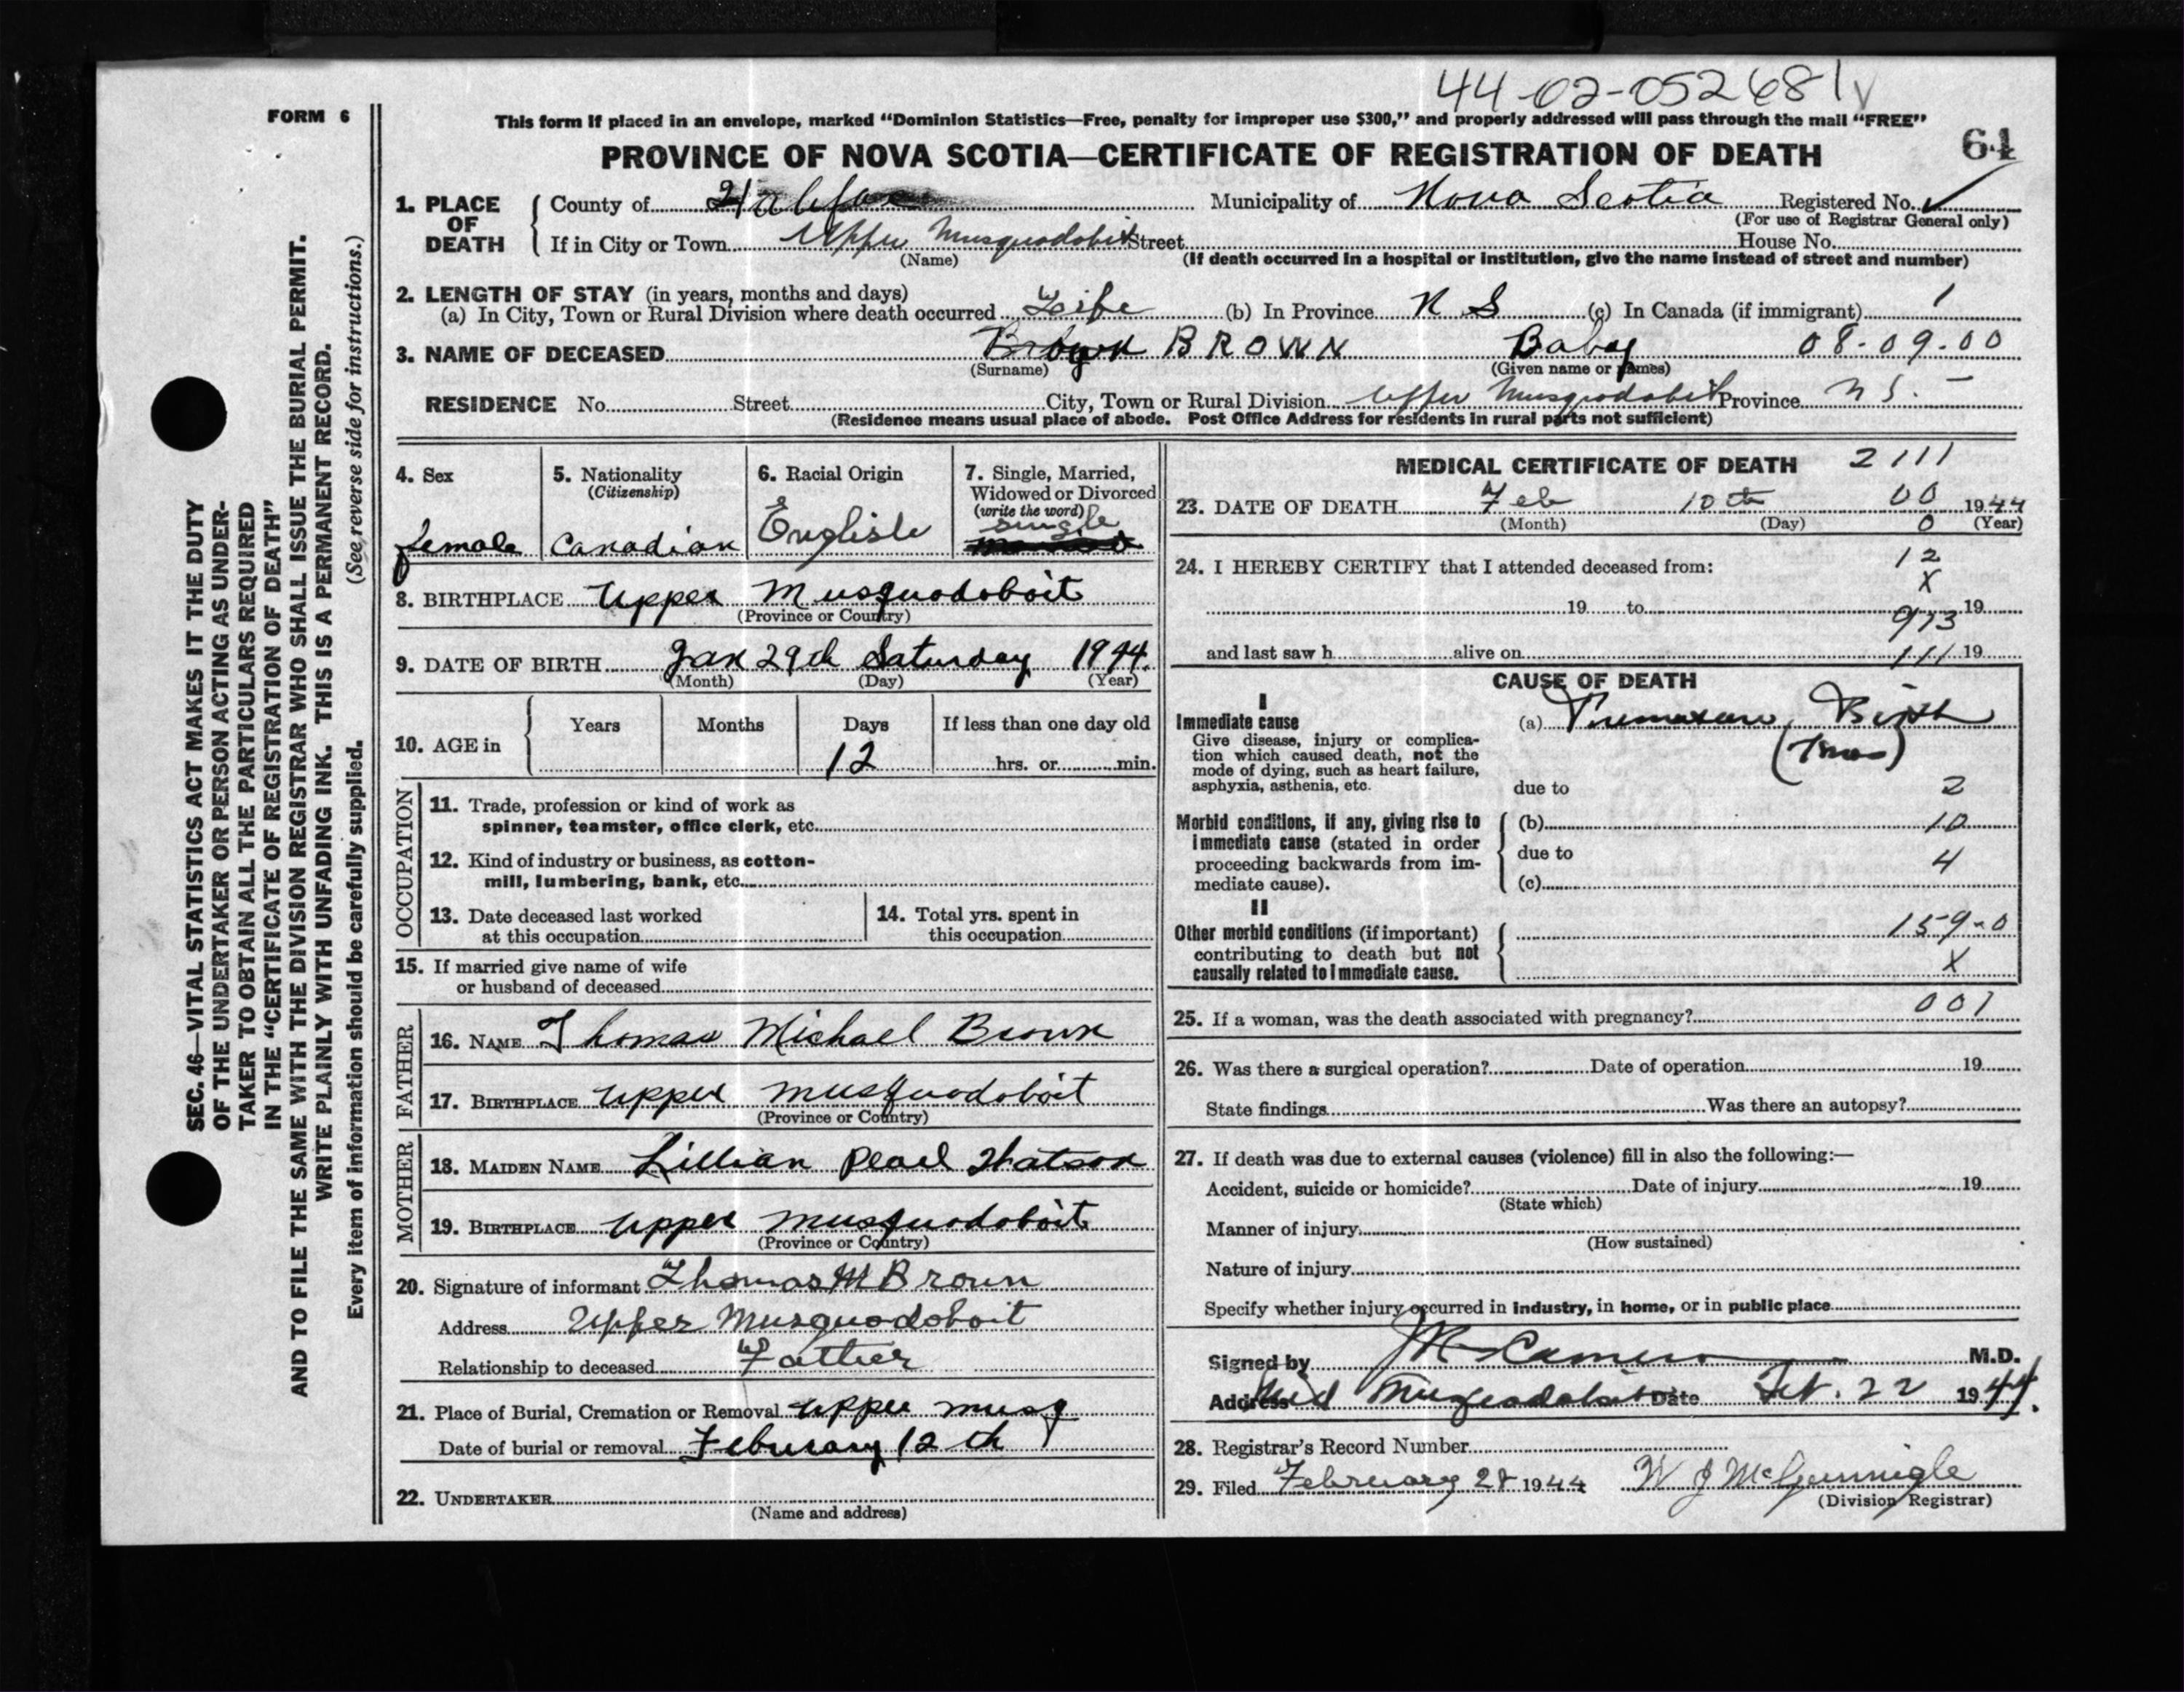 44-02-052681
FORM 6
This form if placed in an envelope, marked "Dominion Statistics—Free, penalty for improper use $300," and properly addressed will pass through the mail "FREE"
64
PROVINCE OF NOVA SCOTIA—CERTIFICATE OF REGISTRATION OF DEATH
1. PLACE OF DEATH
County of Halifax Municipality of Nova Scotia Registered No. ✓
(For use of Registrar General only)
If in City or Town Upper Musquodoboit Street House No.
(Name) (If death occurred in a hospital or institution, give the name instead of street and number)
2. LENGTH OF STAY (in years, months and days)
(a) In City, Town or Rural Division where death occurred Life (b) In Province N S (c) In Canada (if immigrant) 1
3. NAME OF DECEASED Brown BROWN Baby 08-09-00
(Surname) (Given name or names)
RESIDENCE No. Street City, Town or Rural Division Upper Musquodobit Province N S. —
(Residence means usual place of abode. Post Office Address for residents in rural parts not sufficient)
4. Sex
female
5. Nationality
(Citizenship)
Canadian
6. Racial Origin
English
7. Single, Married,
Widowed or Divorced
(write the word)
single
8. BIRTHPLACE Upper Musquodoboit
(Province or Country)
9. DATE OF BIRTH Jan 29th Saturday 1944.
(Month) (Day) (Year)
10. AGE in
Years Months Days If less than one day old
12 hrs. or min.
OCCUPATION
11. Trade, profession or kind of work as
spinner, teamster, office clerk, etc.
12. Kind of industry or business, as cotton-
mill, lumbering, bank, etc.
13. Date deceased last worked
at this occupation
14. Total yrs. spent in
this occupation
15. If married give name of wife
or husband of deceased
FATHER
16. NAME Thomas Michael Brown
17. BIRTHPLACE Upper Musquodoboit
(Province or Country)
MOTHER
18. MAIDEN NAME Lillian Pearl
19. BIRTHPLACE Upper Musquodoboit
(Province or Country)
20. Signature of informant Thomas M Brown
Address Upper Musquodoboit
Relationship to deceased Father
21. Place of Burial, Cremation or Removal Upper Musq
Date of burial or removal Feburary 12th
22. UNDERTAKER
(Name and address)
MEDICAL CERTIFICATE OF DEATH 2111
23. DATE OF DEATH Feb 10th 00 1944
(Month) (Day) 0 (Year)
24. I HEREBY CERTIFY that I attended deceased from:
12
X
19 to 19
973
and last saw h alive on 111 19
CAUSE OF DEATH
I
Immediate cause
Give disease, injury or complica-
tion which caused death, not the
mode of dying, such as heart failure,
asphyxia, asthenia, etc.
(a) Premature Birth
due to 2
Morbid conditions, if any, giving rise to
immediate cause (stated in order
proceeding backwards from im-
mediate cause).
(b) 10
due to 4
(c)
II
Other morbid conditions (if important)
contributing to death but not
causally related to immediate cause.
159-0
X
25. If a woman, was the death associated with pregnancy? 001
26. Was there a surgical operation? Date of operation 19
State findings Was there an autopsy?
27. If death was due to external causes (violence) fill in also the following:—
Accident, suicide or homicide? Date of injury 19
(State which)
Manner of injury
(How sustained)
Nature of injury
Specify whether injury occurred in industry, in home, or in public place
Signed by M.D.
Address Mid Musquodoboit Date Feb. 22 1944.
28. Registrar's Record Number
29. Filed February 28 1944 W J McGunnigle
(Division Registrar)
SEC. 46—VITAL STATISTICS ACT MAKES IT THE DUTY
OF THE UNDERTAKER OR PERSON ACTING AS UNDER-
TAKER TO OBTAIN ALL THE PARTICULARS REQUIRED
IN THE "CERTIFICATE OF REGISTRATION OF DEATH"
AND TO FILE THE SAME WITH THE DIVISION REGISTRAR WHO SHALL ISSUE THE BURIAL PERMIT.
WRITE PLAINLY WITH UNFADING INK. THIS IS A PERMANENT RECORD.
Every item of information should be carefully supplied. (See reverse side for instructions.)